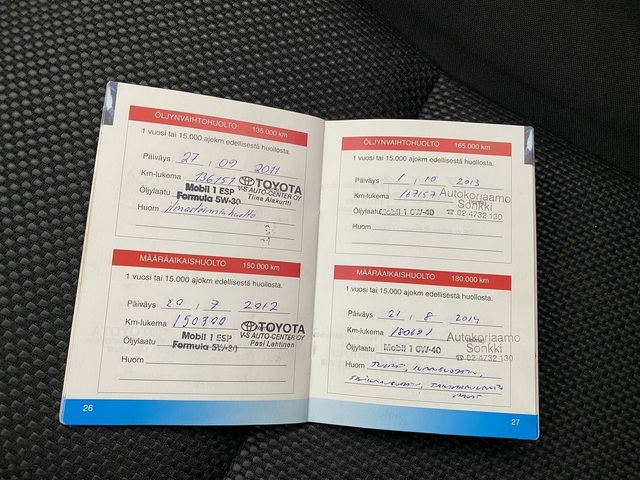 ÖLJYNVAIHTOHUOLTO 135.000 km
1 vuosi tai 15.000 ajokm edellisestä huollosta.
Päiväys 27 . 09 . 2011
Km-lukema 136151
TOYOTA
V-S AUTO-CENTER OY
Tiina Alakurtti
Öljylaatu Mobil 1 ESP
Formula 5W-30
Huom ilmastoinnin huolto
MÄÄRÄAIKAISHUOLTO 150.000 km
1 vuosi tai 15.000 ajokm edellisestä huollosta.
Päiväys 20 . 7 2012
Km-lukema
TOYOTA
V-S AUTO-CENTER OY
Pasi Lahtinen
Öljylaatu Mobil 1 ESP
Formula 5W-30
Huom
26
ÖLJYNVAIHTOHUOLTO 165.000 km
1 vuosi tai 15.000 ajokm edellisestä huollosta.
Päiväys 1 . 10 2013
Km-lukema 167157
Autokorjaamo
Sonkki
☎ 02-4732 130
Öljylaatu Mobil 1 0W-40
Huom
MÄÄRÄAIKAISHUOLTO 180.000 km
1 vuosi tai 15.000 ajokm edellisestä huollosta.
Päiväys 21 . 8 2014
Km-lukema 180671
Autokorjaamo
Sonkki
☎ 02-4732 130
Öljylaatu Mobil 1 0W-40
Huom
27